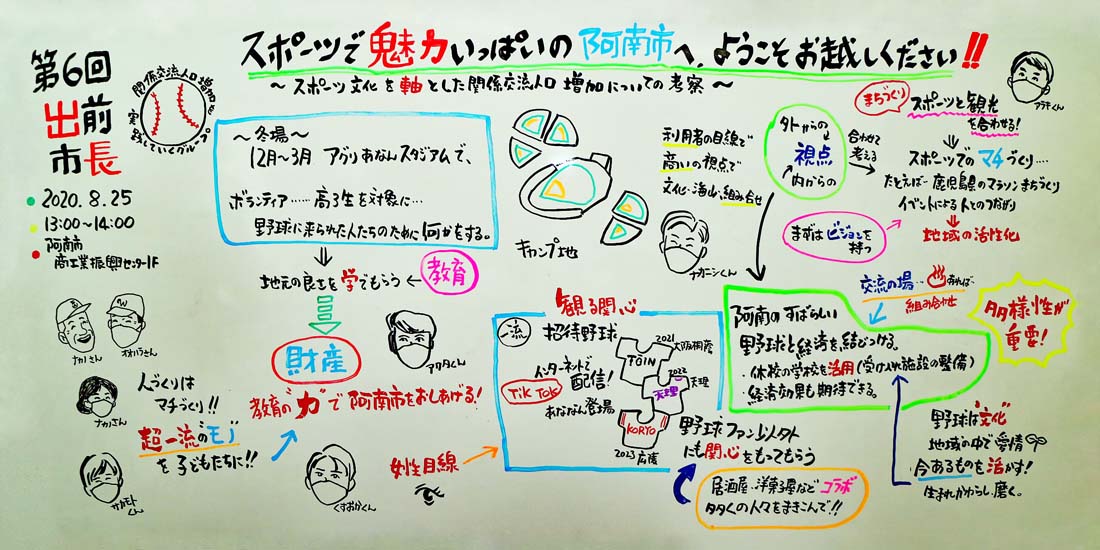 第6回
出前
市長
関係交流人口増加を
実践していくグループ
2020.8.25
13:00〜14:00
阿南市
商工業振興センター1F
スポーツで魅力いっぱいの阿南市へ、ようこそお越しください!!
〜スポーツ文化を軸とした関係交流人口増加についての考察〜
〜冬場〜
12月〜3月 アグリあなんスタジアムで、
ボランティア……高3生を対象に…
野球に来られた人たちのために何かをする。
地元の良さを学でもらう
教育
財産
教育の"力"で阿南市をおしあげる!
ナカノさん
オオハラさん
ナカノさん
人づくりは
マチづくり!!
超一流の"モノ"
を子どもたちに!!
サカモトくん
くすおかくん
アワタくん
女性目線
キャンプ地
利用者の目線で
商いの視点で
文化・海山、組み合せ
ナカニシくん
外からの
視点
内からの
合わせて
考える
まちづくり
スポーツと観光
を合わせる!
アラキくん
スポーツでのマチづくり…
たとえば…鹿児島県のマラソンまちづくり
イベントによる人とのつながり
地域の活性化
まずはビジョンを
持つ
観る関心
一流
招待野球
インターネットで
配信!
TikTok
あななん登場
2021
大阪桐蔭
TOIN
2022
天理
天理
KORYO
2023広陵
野球ファン以外
にも関心をもってもらう
居酒屋・洋菓子屋などコラボ
多くの人々をまきこんで!!
交流の場…♨あれば
組み合わせ
阿南のすばらしい
野球と経済を結びつける。
・休校の学校を活用(受け入れ施設の整備)
・経済効果も期待できる。
多様性が
重要!
野球は"文化"
地域の中で愛情
今あるものを活かす!
生まれかわらし、磨く。